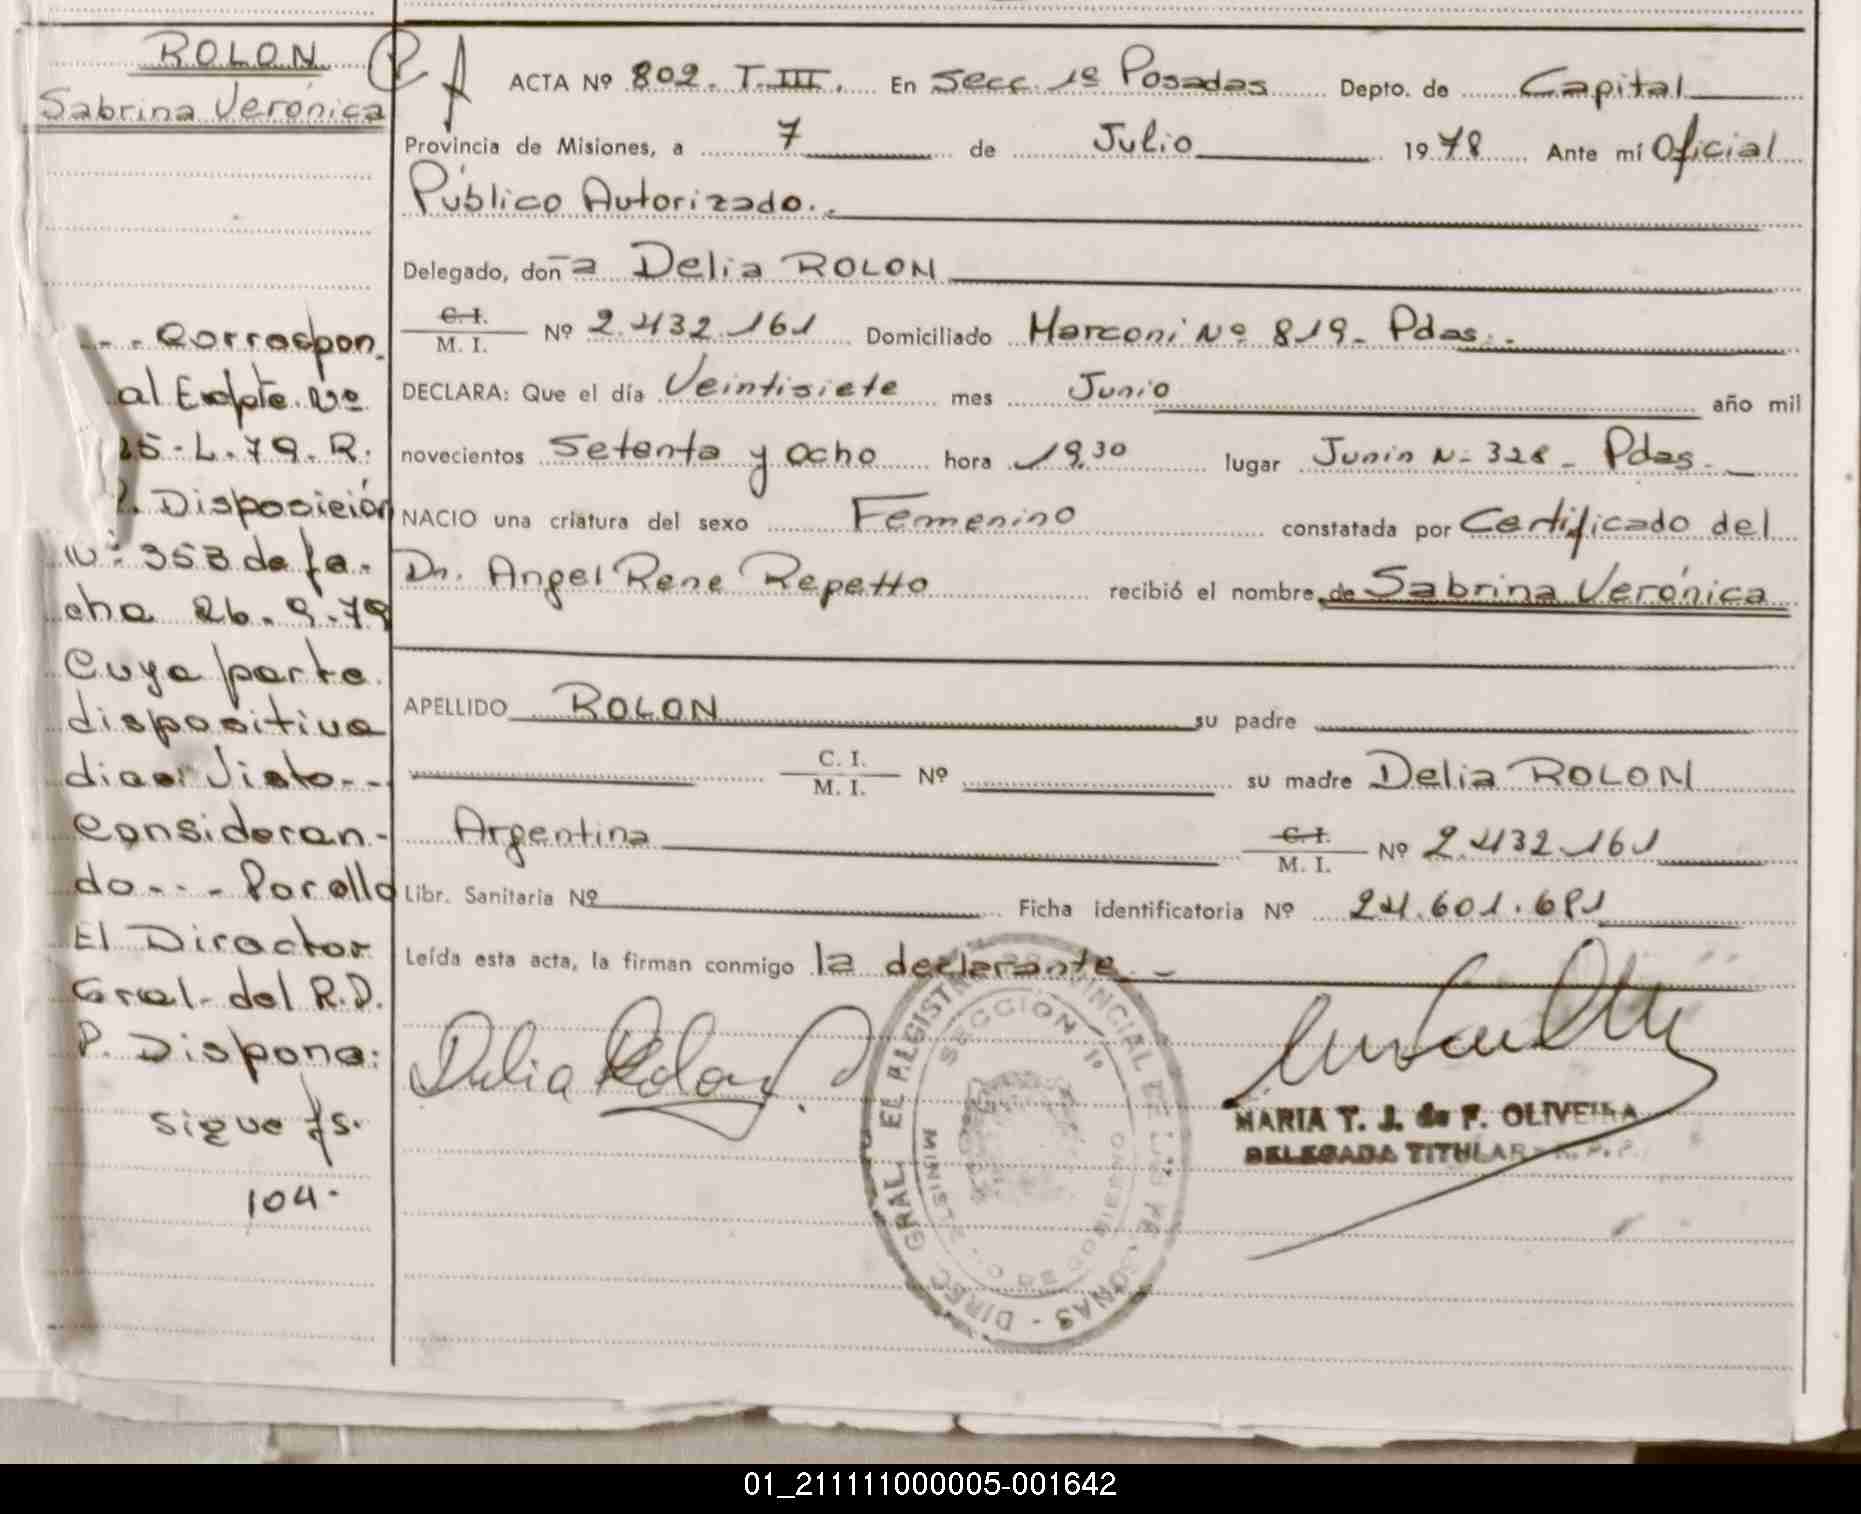 ROLON
Sabrina Verónica
ACTA Nº 802. T. III. En Secc. 1º Posadas Depto. de Capital
Provincia de Misiones, a 7 de Julio 1978 Ante mí Oficial
Público Autorizado.
Delegado, don̄a Delia ROLON
C.I. / M. I. Nº 2.432.161 Domiciliado Marconi Nº 819- Pdas.
DECLARA: Que el día Veintisiete mes Junio año mil
novecientos Setenta y ocho hora 19.30 lugar Junin N- 328- Pdas.
NACIO una criatura del sexo Femenino constatada por Certificado del
Dr. Angel Rene Repetto recibió el nombre de Sabrina Verónica
APELLIDO ROLON su padre
C. I. / M. I. Nº su madre Delia ROLON
Argentina C.I. / M. I. Nº 2.432.161
Libr. Sanitaria Nº Ficha identificatoria Nº 24.601.681
Leída esta acta, la firman conmigo la declarante.-
Delia Rolon
MARIA T. J. de F. OLIVEIRA
DELEGADA TITULAR - R.P.P.
DIREC. GRAL. EL REGISTRO PROVINCIAL DE LAS PERSONAS
SECCION 1º
--Correspon.
al Expte. Nº
25-L-79.R.
P. Disposición
Nº 353 de fe-
cha 26-9-79
Cuya parte
dispositiva
dice: Visto--
Consideran-
do--- Por ello
El Director
Gral- del R.D.
P. Dispone:
sigue fs.
104-
01_211111000005-001642